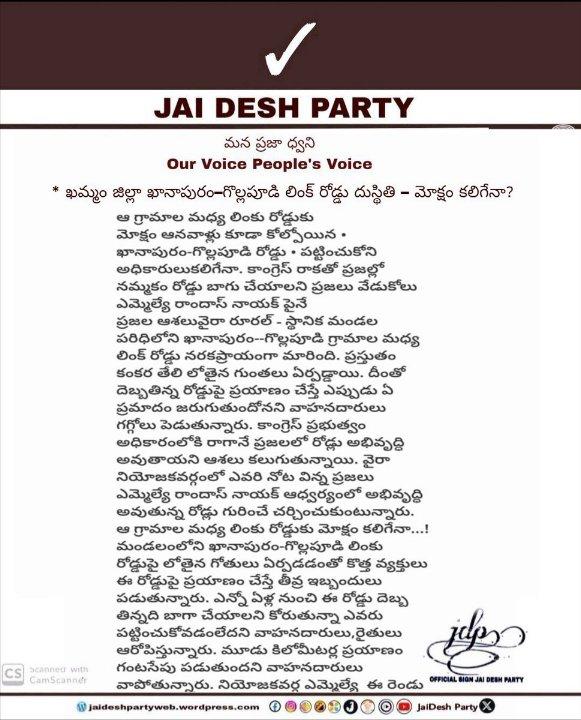 JAI DESH PARTY
మన ప్రజా ధ్వని
Our Voice People's Voice
* ఖమ్మం జిల్లా ఖానాపురం–గొల్లపూడి లింక్ రోడ్డు దుస్థితి – మోక్షం కలిగేనా?
ఆ గ్రామాల మధ్య లింకు రోడ్డుకు
మోక్షం ఆనవాళ్లు కూడా కోల్పోయిన •
ఖానాపురం-గొల్లపూడి రోడ్డు • పట్టించుకోని
అధికారులుకలిగేనా. కాంగ్రెస్ రాకతో ప్రజల్లో
నమ్మకం రోడ్డు బాగు చేయాలని ప్రజలు వేడుకోలు
ఎమ్మెల్యే రాందాస్ నాయక్ పైనే
ప్రజల ఆశలువైరా రూరల్ - స్థానిక మండల
పరిధిలోని ఖానాపురం--గొల్లపూడి గ్రామాల మధ్య
లింక్ రోడ్డు నరకప్రాయంగా మారింది. ప్రస్తుతం
కంకర తేలి లోతైన గుంతలు ఏర్పడ్డాయి. దీంతో
దెబ్బతిన్న రోడ్డుపై ప్రయాణం చేస్తే ఎప్పుడు ఏ
ప్రమాదం జరుగుతుందోనని వాహనదారులు
గగ్గోలు పెడుతున్నారు. కాంగ్రెస్ ప్రభుత్వం
అధికారంలోకి రాగానే ప్రజలలో రోడ్లు అభివృద్ధి
అవుతాయని ఆశలు కలుగుతున్నాయి. వైరా
నియోజకవర్గంలో ఎవరి నోట విన్న ప్రజలు
ఎమ్మెల్యే రాందాస్ నాయక్ ఆధ్వర్యంలో అభివృద్ధి
అవుతున్న రోడ్ల గురించే చర్చించుకుంటున్నారు.
ఆ గ్రామాల మధ్య లింకు రోడ్డుకు మోక్షం కలిగేనా...!
మండలంలోని ఖానాపురం-గొల్లపూడి లింకు
రోడ్డుపై లోతైన గోతులు ఏర్పడడంతో కొత్త వ్యక్తులు
ఈ రోడ్డుపై ప్రయాణం చేస్తే తీవ్ర ఇబ్బందులు
పడుతున్నారు. ఎన్నో ఏళ్ల నుంచి ఈ రోడ్డు దెబ్బ
తిన్నది బాగా చేయాలని కోరుతున్నా ఎవరు
పట్టించుకోవడంలేదని వాహనదారులు,రైతులు
ఆరోపిస్తున్నారు. మూడు కిలోమీటర్ల ప్రయాణం
గంటసేపు పడుతుందని వాహనదారులు
వాపోతున్నారు. నియోజకవర్గ ఎమ్మెల్యే ఈ రెండు
jdp
OFFICIAL SIGN JAI DESH PARTY
CS Scanned with
CamScanner
jaideshpartyweb.wordpress.com JaiDesh Party